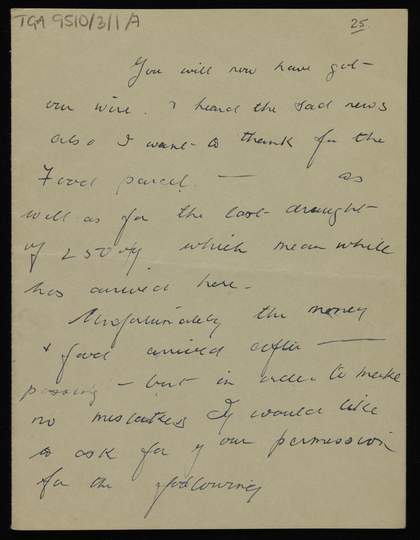 TGA 9510/3/1/7
25
You will now have got
our wire. I heard the sad news
also I want to thank for the
Food parcel. — as
well as for the last draught
of £50 which mean while
has arrived here -
Unfortunately the money
& food arrived after
passing - but in order to make
no mistakes I would like
to ask for your permission
for the following